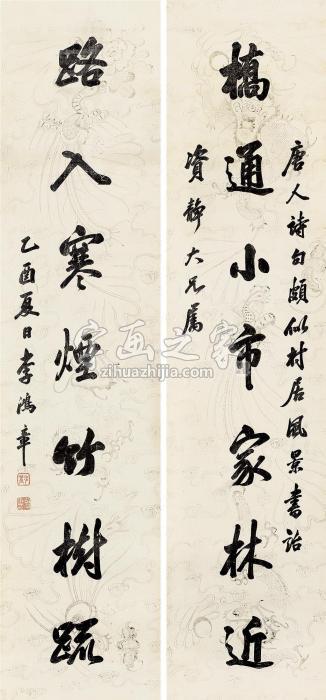 唐人詩句頗似村居風景書詒
橋通小市家林近
資靜大兄屬
路入寒煙竹樹疏
乙酉夏日李鴻章
字画之家
zihuazhijia.com